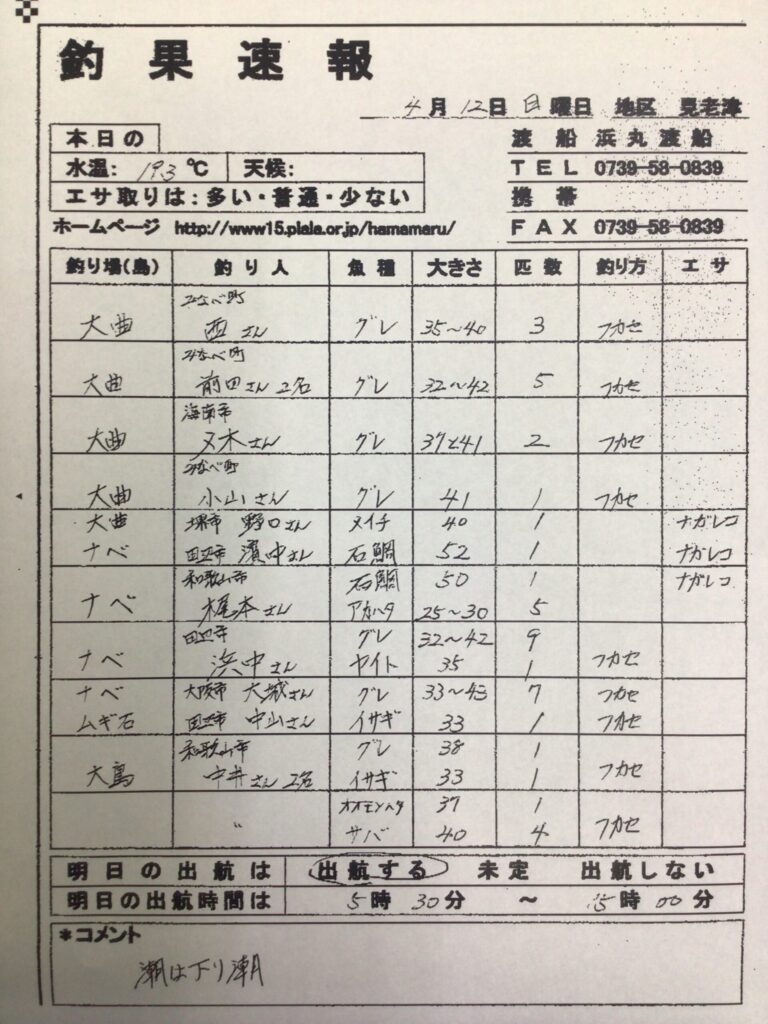 釣果速報
4月12日 日曜日 地区 見老津
本日の
渡船 浜丸渡船
水温: 19.3 ℃ 天候:
TEL 0739-58-0839
エサ取りは:多い・普通・少ない
携帯
ホームページ http://www15.plala.or.jp/hamamaru/
FAX 0739-58-0839
釣り場(島) 釣り人 魚種 大きさ 匹数 釣り方 エサ
みなべ町
大曲 西さん グレ 35~40 3 フカセ
みなべ町
大曲 前田さん 2名 グレ 32~42 5 フカセ
海南市
大曲 又木さん グレ 37と41 2 フカセ
みなべ町
大曲 小山さん グレ 41 1 フカセ
大曲 堺市 野口さん メイチ 40 1 ナガレコ
ナベ 田辺市 濱中さん 石鯛 52 1 ナガレコ
和歌山市 石鯛 50 1 ナガレコ
ナベ 梶本さん アカハタ 25~30 5
田辺市 グレ 32~42 9
ナベ 浜中さん ヤイト 35 1 フカセ
ナベ 大阪市 大城さん グレ 33~43 7 フカセ
ムギ石 田辺市 中山さん イサギ 33 1 フカセ
和歌山市 グレ 38 1
大島 中井さん 2名 イサギ 33 1 フカセ
オオモンハタ 37 1
〃 サバ 40 4 フカセ
明日の出航は 出航する 未定 出航しない
明日の出航時間は 5時30分 ~ 15時00分
*コメント
潮は下り潮